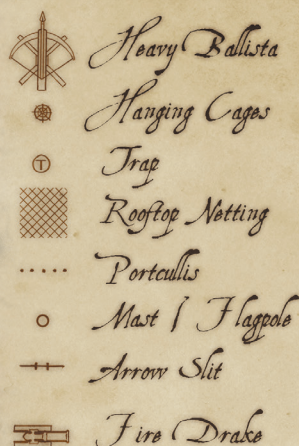 Heavy Ballista
Hanging Cages
T
Trap
Rooftop Netting
Portcullis
Mast / Flagpole
Arrow Slit
Fire Drake